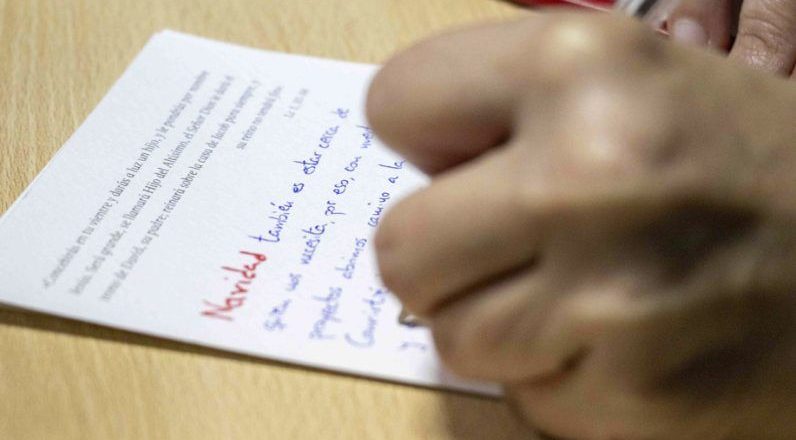 «Concebirás en tu vientre y darás a luz un hijo, y le pondrás por nombre
Jesús. Será grande, se llamará Hijo del Altísimo, el Señor Dios le dará el
trono de David, su padre; reinará sobre la casa de Jacob para siempre, y
su reino no tendrá fin»
Lc 1,
Navidad también es estar cerca de
quien nos necesita, por eso, con
proyectos abrimos camino a la
y